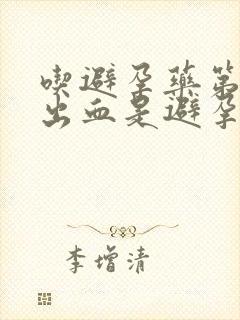 喫避孕藥第
出血是避孕
李增清